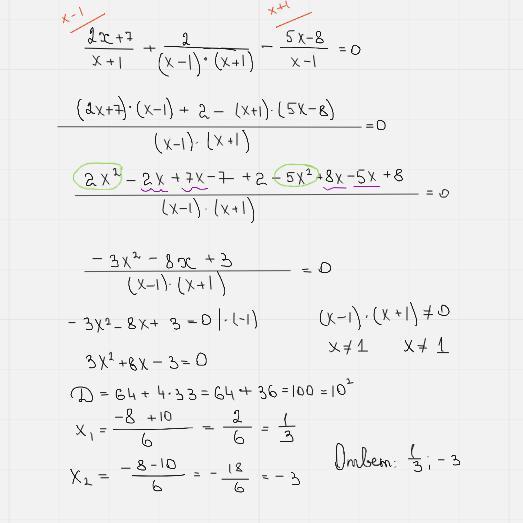 x-1 x+1
(2x+7)/(x+1) + 2/((x-1)·(x+1)) - (5x-8)/(x-1) = 0
((2x+7)·(x-1) + 2 - (x+1)·(5x-8))/((x-1)·(x+1)) = 0
(2x² - 2x + 7x - 7 + 2 - 5x² + 8x - 5x + 8)/((x-1)·(x+1)) = 0
(-3x² - 8x + 3)/((x-1)·(x+1)) = 0
-3x² - 8x + 3 = 0 |·(-1) (x-1)·(x+1) ≠ 0
3x² + 8x - 3 = 0 x ≠ 1 x ≠ 1
D = 64 + 4·33 = 64 + 36 = 100 = 10²
x₁ = (-8+10)/6 = 2/6 = 1/3
x₂ = (-8-10)/6 = -18/6 = -3 Ответ: 1/3; -3